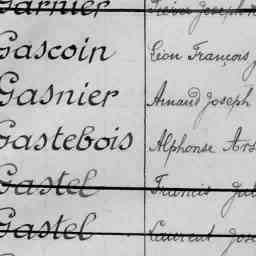 Garnier Pierre Joseph
Gascoin Léon François
Gasnier Arnaud Joseph
Gastebois Alphonse
Gastel Francis
Gastel Laurent